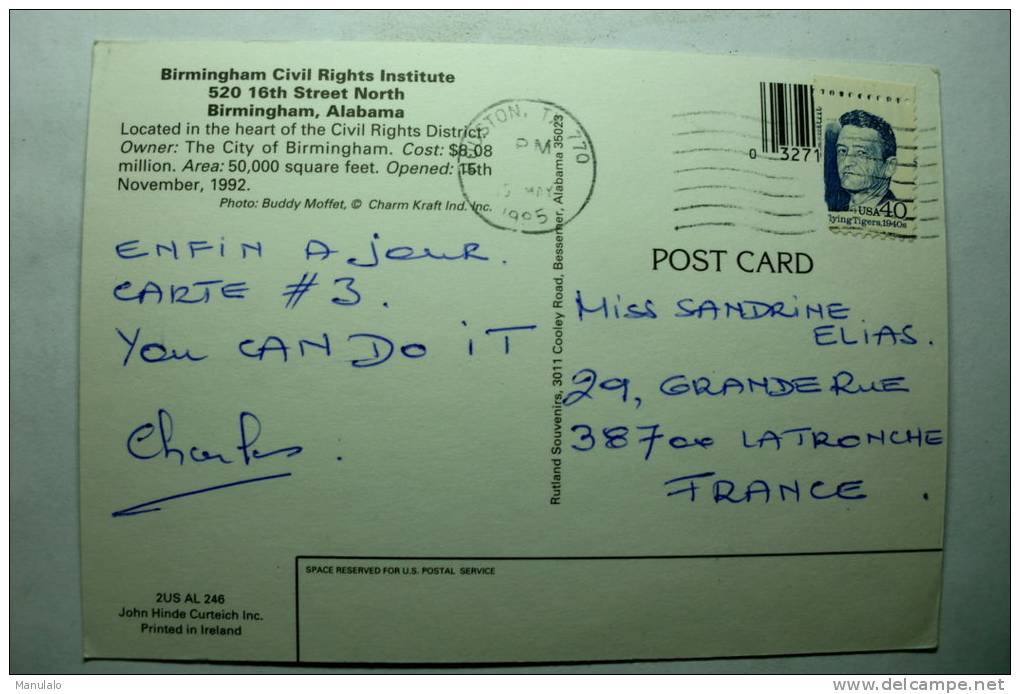 Birmingham Civil Rights Institute
520 16th Street North
Birmingham, Alabama
Located in the heart of the Civil Rights District.
Owner: The City of Birmingham. Cost: $8.08
million. Area: 50,000 square feet. Opened: 15th
November, 1992.
Photo: Buddy Moffet, © Charm Kraft Ind. Inc.
ENFIN A JOUR.
CARTE #3.
You CAN DO iT
Charles.
2US AL 246
John Hinde Curteich Inc.
Printed in Ireland
Rutland Souvenirs, 3011 Cooley Road, Bessemer, Alabama 35023
HOUSTON, TX 770
PM
5 MAY
1995
0 3271
USA 40
lying Tigers, 1940s
POST CARD
Miss SANDRINE
ELIAS.
29, GRANDE RUE
38700 LA TRONCHE
FRANCE.
SPACE RESERVED FOR U.S. POSTAL SERVICE
Manulalo
delcampe.net